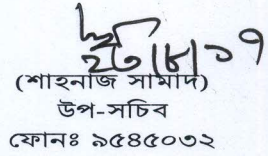 ২৩/৮/১৭
(শাহনাজ সামাদ)
উপ-সচিব
ফোনঃ ৯৫৪৫০৩২